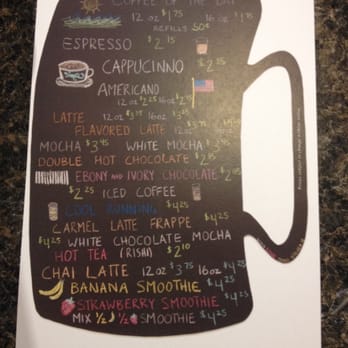 COFFEE OF THE DAY
12 oz $1.75 16 oz $1.95
REFILLS 50¢
ESPRESSO $2.15
CAPPUCINNO
AMERICANO
12 oz $2.25 16 oz $2.
LATTE 12 oz $3.75 16 oz $4.25
FLAVORED LATTE 12 oz
MOCHA $3.95 WHITE MOCHA $3.95
DOUBLE HOT CHOCOLATE $2.15
EBONY AND IVORY CHOCOLATE
$2.25 ICED COFFEE
COOL RUNNING $4.25
CARMEL LATTE FRAPPE $4.25
$4.25 WHITE CHOCOLATE MOCHA
HOT TEA (RISHI) $2.10
CHAI LATTE 12 oz $3.75 16 oz $4.25
BANANA SMOOTHIE $4.25
STRAWBERRY SMOOTHIE $4.25
MIX 1/2 1/2 SMOOTHIE $4.25